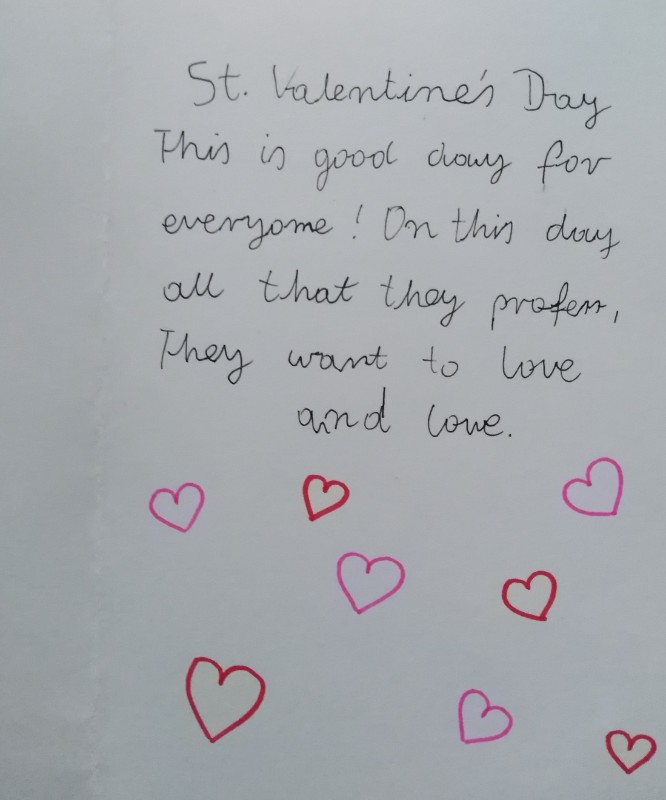 St. Valentine's Day
This is good day for
everyone! On this day
all that they preferr,
They want to love
and love.